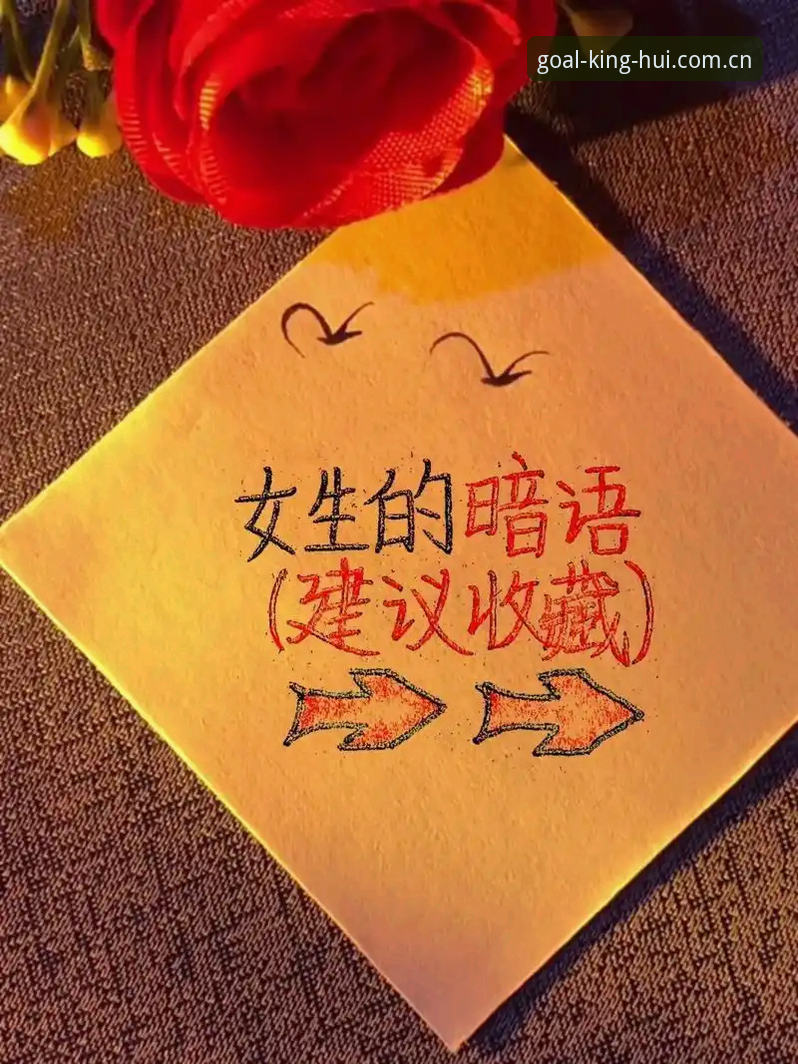 goal-king-hui.com.cn
女生的暗语
(建议收藏)